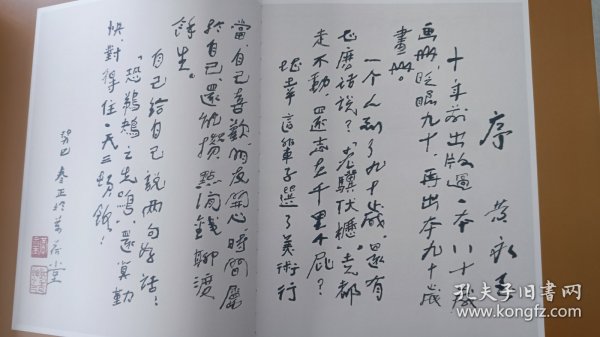 序 黄永玉
十年前出版过一本八十岁
画册,眨眼九十,再出本九十岁
畫册。
一个人到了九十歲,還有
甚麽话説?“老驥伏櫪”,走都
走不動,還志在千里个屁?
好幸這輩子選了美術行
當,自己喜歡,朋友開心,時間屬
於自己,還能攢點閒錢聊渡
餘生。
自己給自己説两句好話:
“恐鵜鴂之先鳴”,還算勤
快,對得住一天三頓飯!
癸巳春正於萬荷堂
孔夫子旧书网
www.kongfz.com